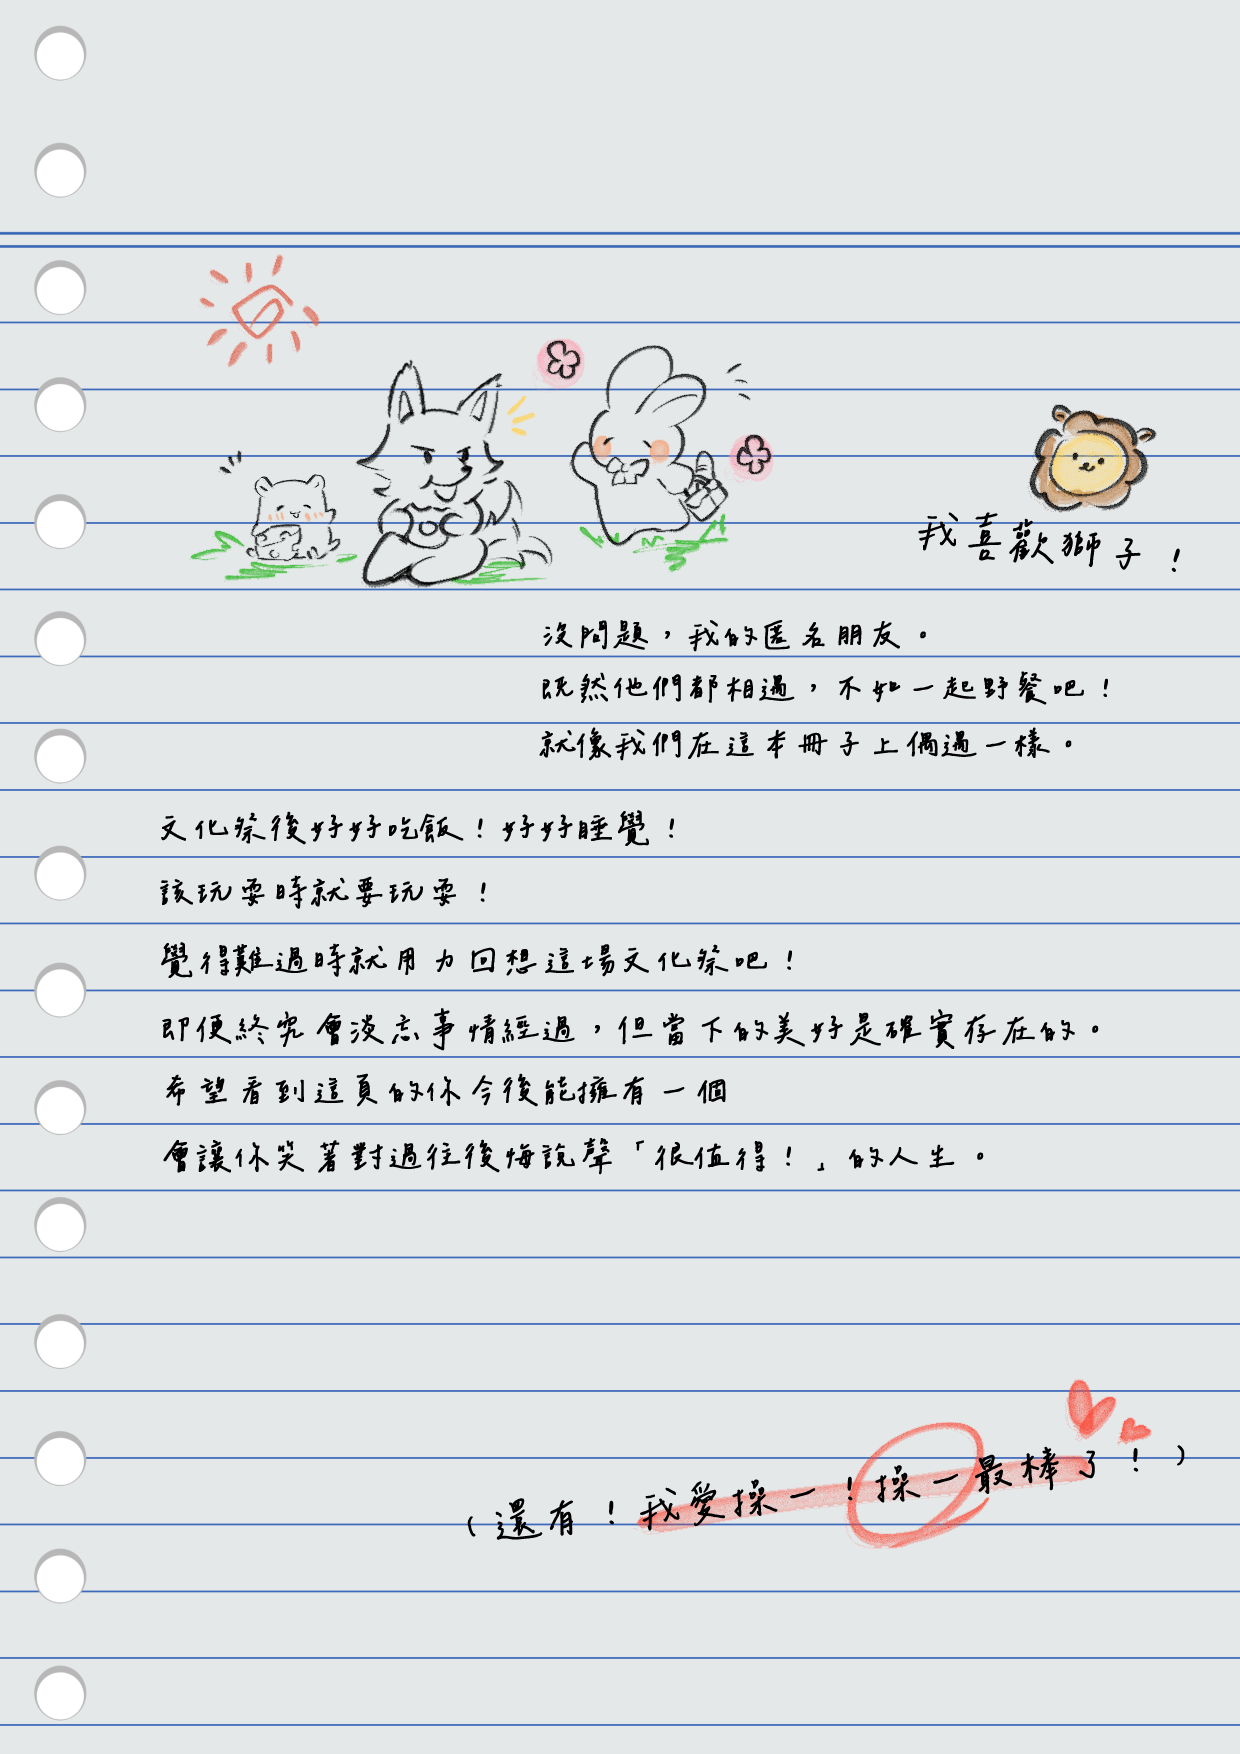 我喜歡獅子！
沒問題，我的匿名朋友。
既然他們都相遇，不如一起野餐吧！
就像我們在這本冊子上偶遇一樣。
文化祭後好好吃飯！好好睡覺！
該玩耍時就要玩耍！
覺得難過時就用力回想這場文化祭吧！
即便終究會淡忘事情經過，但當下的美好是確實存在的。
希望看到這頁的你今後能擁有一個
會讓你笑著對過往後悔說聲「很值得！」的人生。
（還有！我愛操一！操一最棒了！）